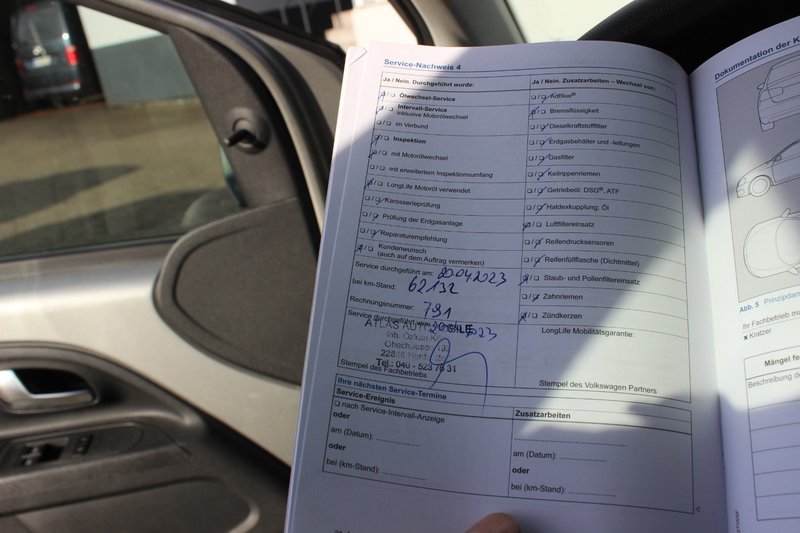 Service-Nachweis 4
Ja / Nein. Durchgeführt wurde:
Ölwechsel-Service
Intervall-Service
inklusive Motorölwechsel
im Verbund
Inspektion
mit Motorölwechsel
mit erweitertem Inspektionsumfang
LongLife Motoröl verwendet
Karosserieprüfung
Prüfung der Erdgasanlage
Reparaturempfehlung
Kundenwunsch
(auch auf dem Auftrag vermerken)
Service durchgeführt am: 20.04.2023
bei km-Stand: 62132
Rechnungsnummer: 791
Service durchgeführt
ATLAS AUTOMOBILE
Inh. Özkan
Tel.: 040 - 523 76 31
Stempel des Fachbetriebs
Ja / Nein. Zusatzarbeiten – Wechsel von:
AdBlue®
Bremsflüssigkeit
Dieselkraftstofffilter
Erdgasbehälter und -leitungen
Gasfilter
Keilrippenriemen
Getriebeöl: DSG®, ATF
Haldexkupplung: Öl
Luftfiltereinsatz
Reifendrucksensoren
Reifenfüllflasche (Dichtmittel)
Staub- und Pollenfiltereinsatz
Zahnriemen
Zündkerzen
LongLife Mobilitätsgarantie:
Stempel des Volkswagen Partners
Ihre nächsten Service-Termine
Service-Ereignis
nach Service-Intervall-Anzeige
oder
am (Datum): ...............
oder
bei (km-Stand): ...............
Zusatzarbeiten
am (Datum): ...............
oder
bei (km-Stand): ...............
Dokumentation der K
Abb. 5 Prinzipdar
Ihr Fachbetrieb mä
x Kratzer
Mängel fe
Beschreibung de